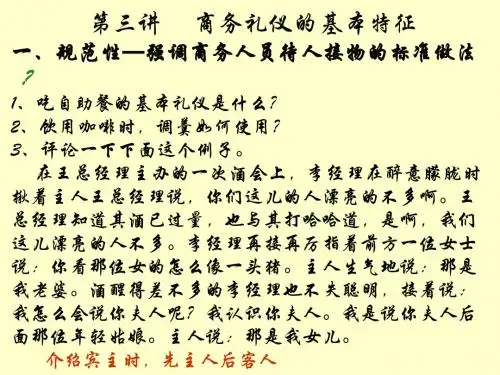 第三讲 商务礼仪的基本特征
一、规范性—强调商务人员待人接物的标准做法
?
1、吃自助餐的基本礼仪是什么?
2、饮用咖啡时,调羹如何使用?
3、评论一下下面这个例子。
在王总经理主办的一次酒会上,李经理在醉意朦胧时
揪着主人王总经理说,你们这儿的人漂亮的不多啊。王
总经理知道其酒已过量,也与其打哈哈道,是啊,我们
这儿漂亮的人不多。李经理再接再厉指着前方一位女士
说:你看那位女的怎么像一头猪。主人生气地说:那是
我老婆。酒醒得差不多的李经理也不失聪明,接着说:
我怎么会说你夫人呢?我认识你夫人。我是说你夫人后
面那位年轻姑娘。主人说:那是我女儿。
介绍宾主时,先主人后客人